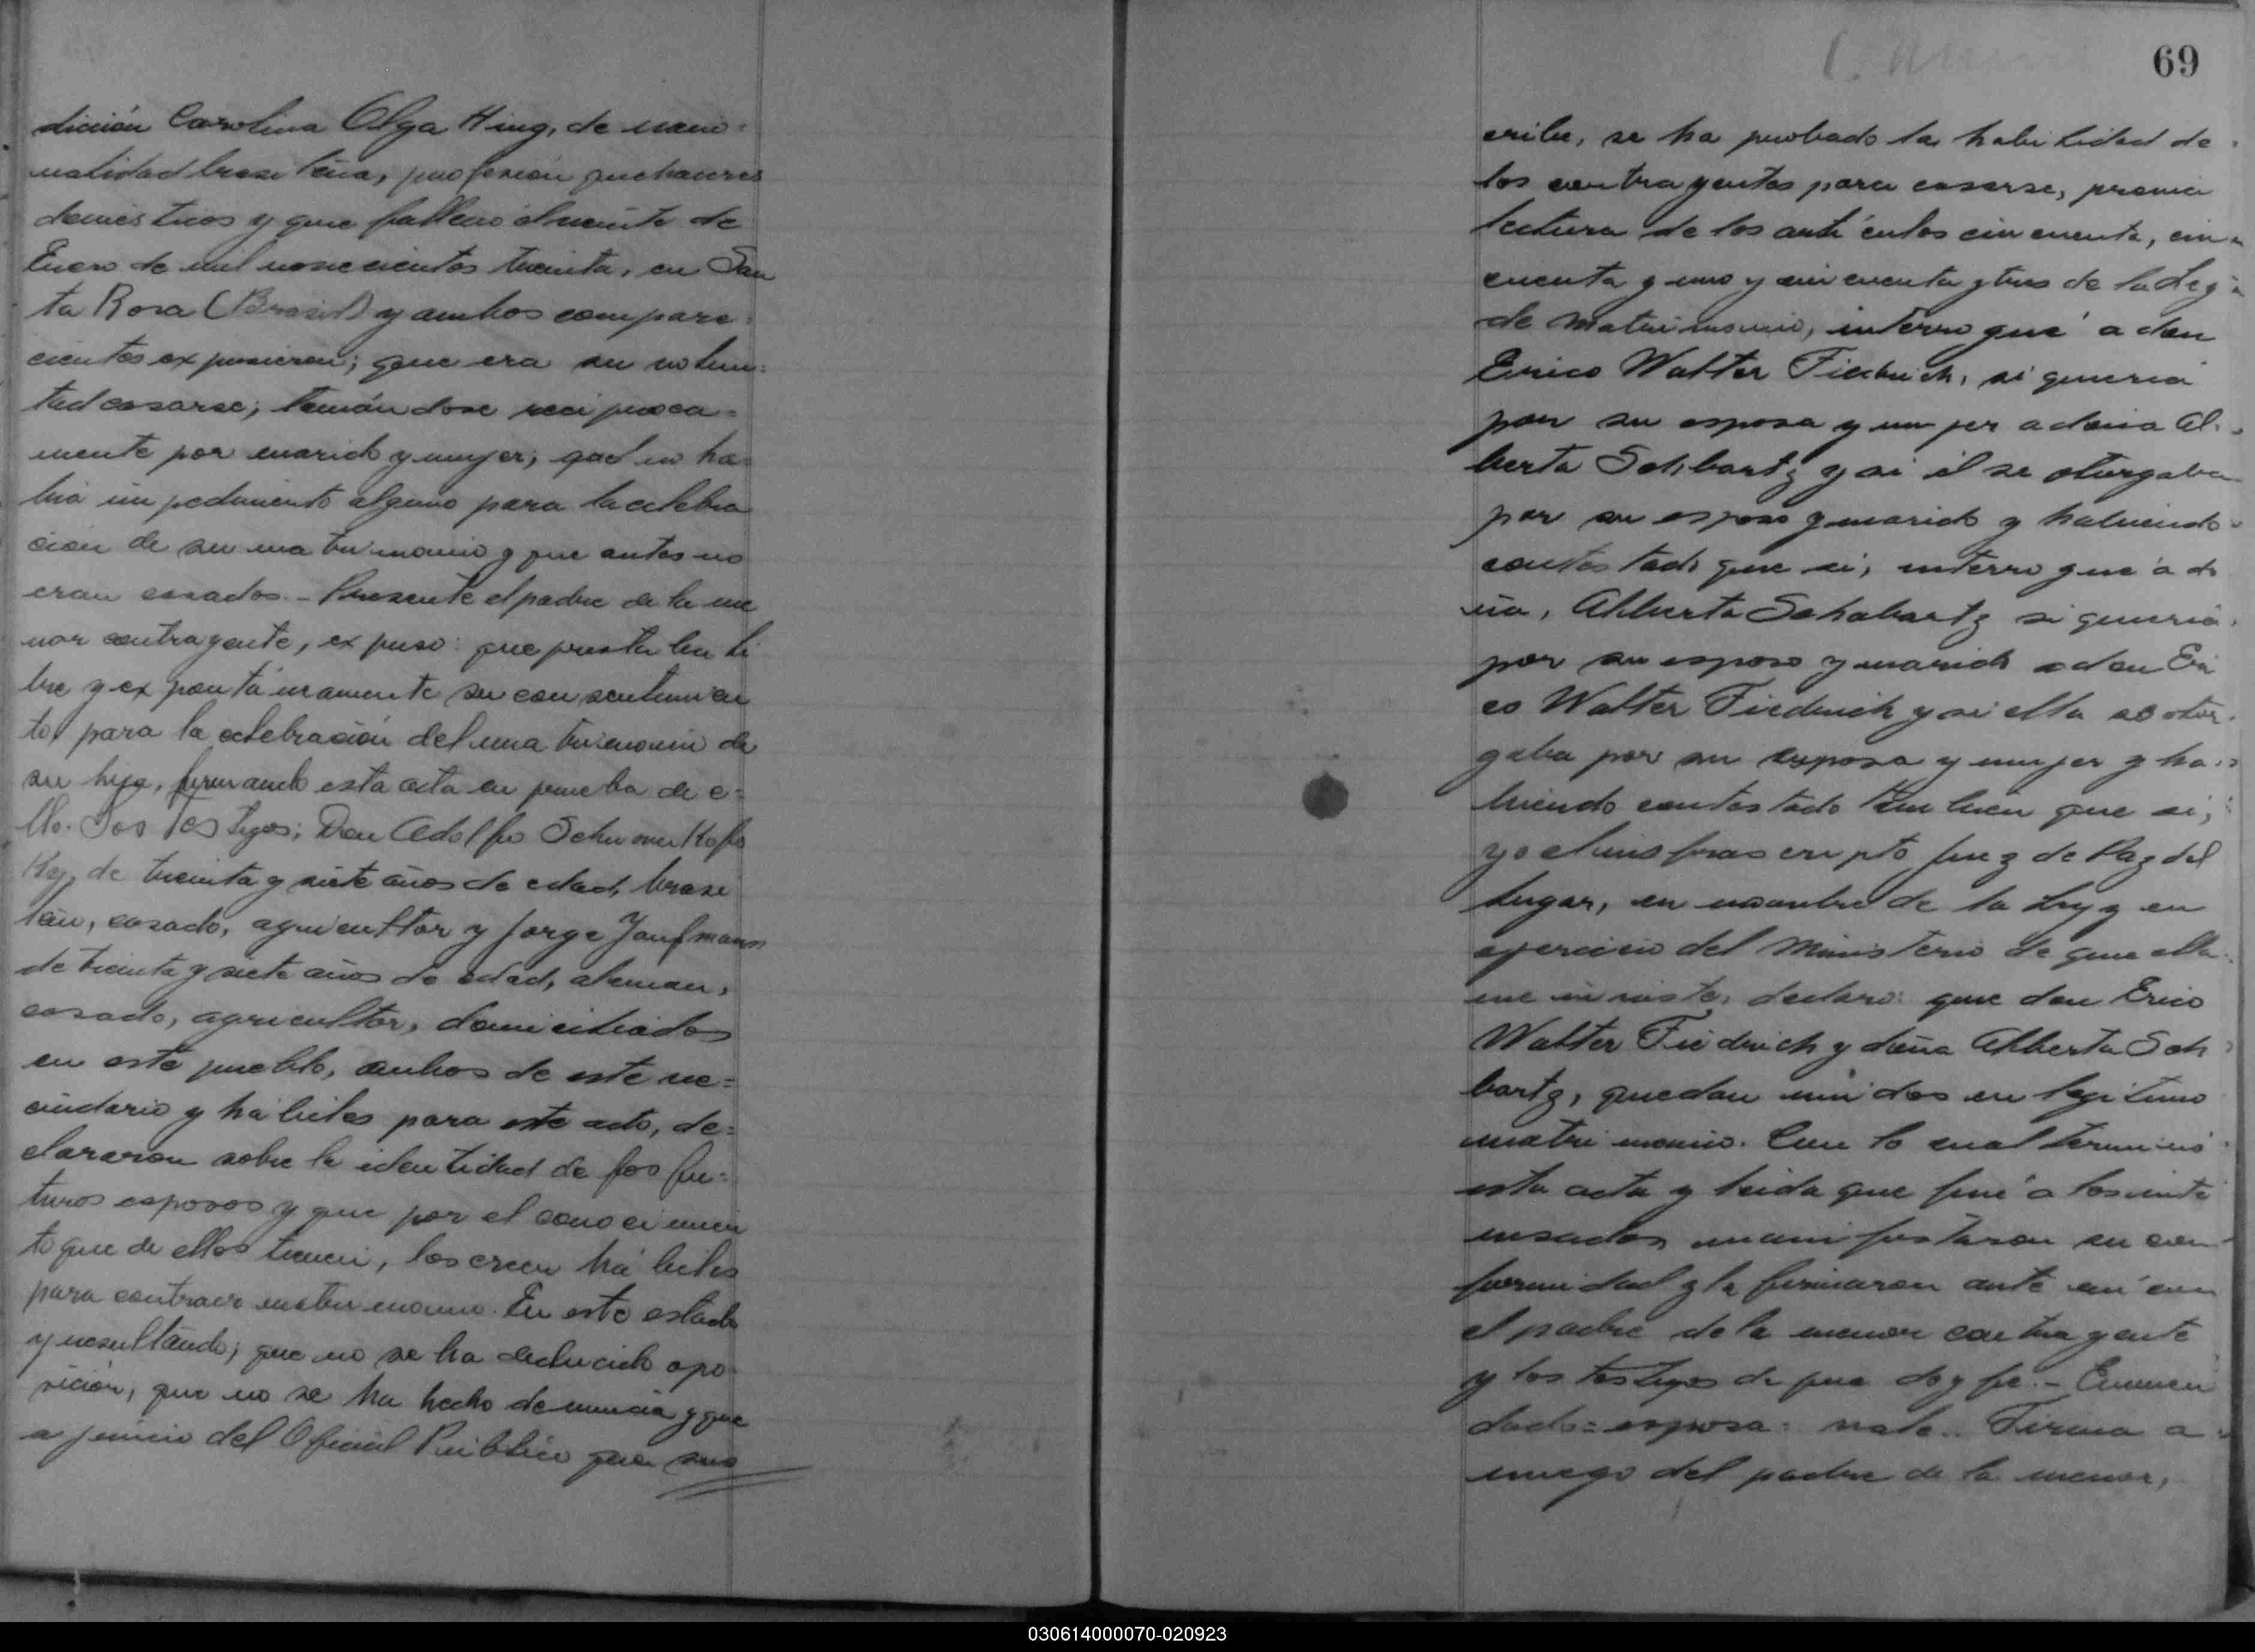 dición Carolina Olga Hing, de nacio=
nalidad brasileña, profesión quehaceres
domésticos y que falleció el veinte de
Enero de mil novecientos treinta, en San
ta Rosa (Brasil) y ambos compare=
cientes expusieron; que era su volun=
tad casarse; tomándose recíproca=
mente por marido y mujer; que no ha=
bía impedimento alguno para la celebra
ción de su matrimonio y que antes no
eran casados.- Presente el padre de la me
nor contrayente, expuso: que presta su li
bre y expontáneamente su consentimien
to, para la celebración del matrimonio de
su hija, firmando esta acta en prueba de e=
llo. Los Testigos; Don Adolfo
de treinta y siete años de edad, brasi
leño, casado, agricultor y Jorge
de treinta y siete años de edad, aleman,
casado, agricultor, domiciliados
en este pueblo, ambos de este ve=
cindario y hábiles para este acto, de=
clararon sobre la identidad de los fu=
turos esposos y que por el conocimien
to que de ellos tienen, los creen hábiles
para contraer matrimonio. En este estado
y resultando; que no se ha deducido opo
sición, que no se ha hecho denuncia y que
a juicio del Oficial Público que sus
69
cribe, se ha probado la habilidad de
los contrayentes para casarse, previa
lectura de los artículos cincuenta, cin=
cuenta y uno y cincuenta y tres de la Ley
de Matrimonio, interrogué a don
Erico Walter Fiedrich, si quería
por su esposa y mujer a doña Al=
berta Schbartz y si él se otorgaba
por su esposo y marido y habiendo
contestado que si, interrogué a do
ña, Alberta Schabartz si quería
por su esposo y marido a don Eri
co Walter Fiedrich y si ella se otor
gaba por su esposa y mujer y ha=
biendo contestado tambien que si;
yo el infrascripto Juez de Paz del
Lugar, en nombre de la Ley y en
ejercicio del Ministerio de que ella
me inviste, declaro: que don Erico
Walter Fiedrich y doña Alberta Sch
bartz, quedan unidos en legitimo
matrimonio. Con lo cual terminó
esta acta y leida que fué a los inte
resados manifestaron su con
formidad y la firmaron ante mí con
el padre de la menor contrayente
y los testigos de que doy fe.- Enmen
dado=esposa=vale.. Firma a
ruego del padre de la menor,
030614000070-020923